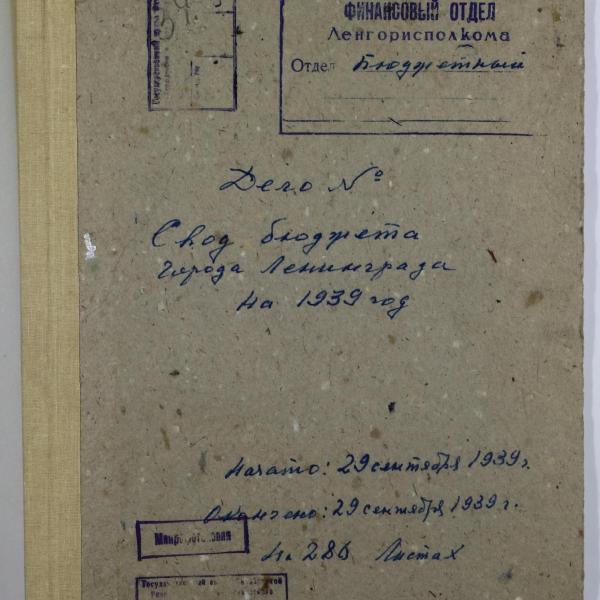 ФИНАНСОВЫЙ ОТДЕЛ
Ленгорисполкома
Отдел Бюджетный
Дело №
Свод бюджета
города Ленинграда
на 1939 год
Начато: 29 сентября 1939 г.
Окончено: 29 сентября 1939 г.
На 286 Листах